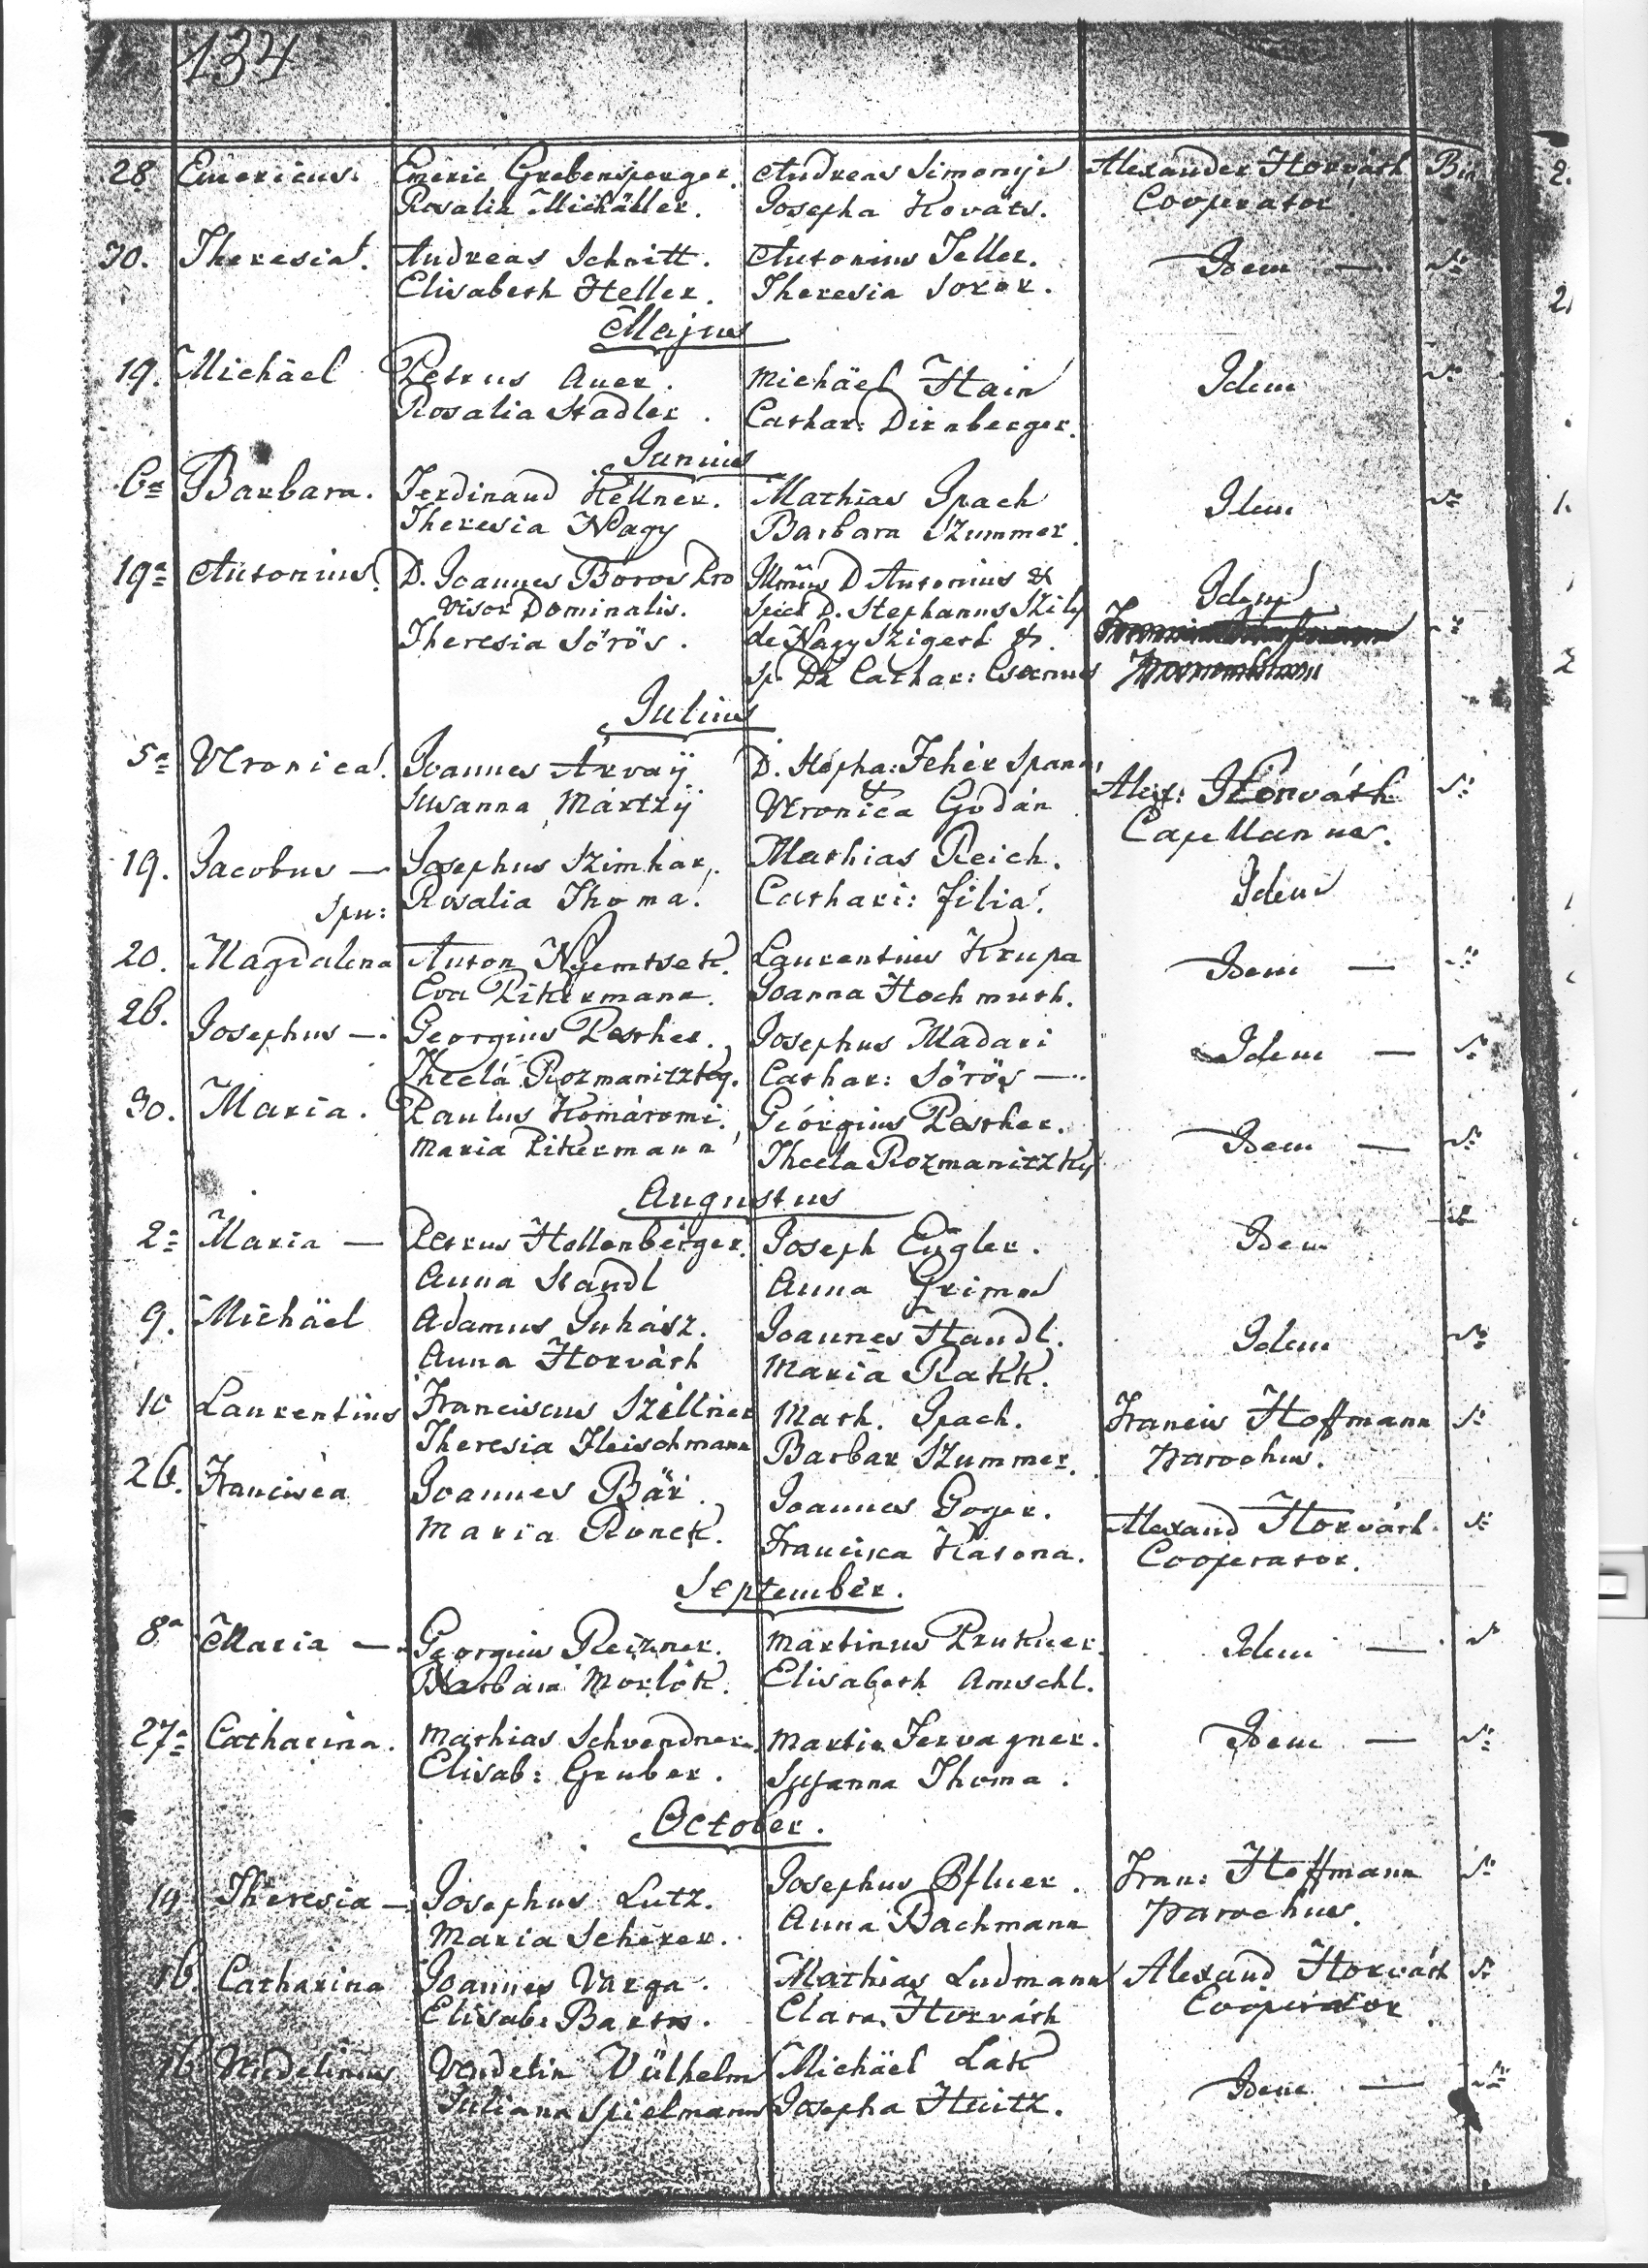 134
28 Emericus. Emeric Grebensperger. Andreas Simonyi Alexander Horváth Bia
Rosalia Michäller. Josepha Kováts. Cooperator.
30. Theresia. Andreas Schnitt. Antonius Teller. Idem —
Elisabeth Heller. Theresia Soror.
Majus
19. Michäel Petrus Auer. Michäel Hain Idem
Rosalia Stadler. Cathar: Dirnberger.
Junius
6a Barbara. Ferdinand Kellner. Mathias Spach Idem
Theresia Nagy Barbara Szummer.
19a Antonius. D. Joannes Boros Pro Illmus D Antonius & Idem
visor Dominalis. Spect D. Stephanus Szily
Theresia Sörös. de Nagy Szigeth &.
Sp. Da Cathar:
Julius
5a Veronica. Joannes Árvaÿ D. Stepha: Fehér Spanus
Susanna Mártzÿ & Veronica Godán Alex: Horváth
Capellanus.
19. Jacobus — Josephus Szimhar. Mathias Reich. Idem
Spu: Rosalia Thoma. Cathari: filia.
20. Magdalena Anton Nyemtsek. Laurentius Krupa Idem —
Eva Pikermann. Joanna Hochmuth.
26. Josephus — Georgius Pesther. Josephus Madari Idem —
Thecla Rozmanitzky. Cathar: Sörös —
30. Maria. Paulus Komáromi. Geórgius Pesther. Idem —
Maria Pikermann Thecla Rozmanitzky
Augustus
2a Maria — Petrus Hollenberger. Joseph Eügler. Idem
Anna Standl Anna Grimm
9. Michäel Adamus Juhász. Joannes Standl. Idem
Anna Horváth Maria Rakk.
10 Laurentius Franciscus Széllner Math. Spach. Francis Hoffmann
Theresia Fleischmann Barbar Szummer. Parochus.
26. Francisca Joannes Bär. Joannes Goger. Alexand Horváth.
Maria Ronek. Francisca Katona. Cooperator.
September.
8a Maria — Georgius Reizner. Martinus Prukner. Idem —
Barbara Morlok. Elisabeth Amschl.
27a Catharina. Mathias Schvendner. Martin Fervagner. Idem —
Elisab: Gruber. Susanna Thoma.
October.
14 Theresia — Josephus Lutz. Josephus Pfluer. Fran: Hoffmann
Maria Scherer. Anna Bachmann Parochus.
16. Catharina Joannes Varga. Mathias Ludmann Alexand Horváth
Elisab: Bartos. Clara Horváth Cooperator
16 Vendelinus Vendelin Vülhelm Michäel Lak Idem —
Juliana Spielmann Josepha Huitz.